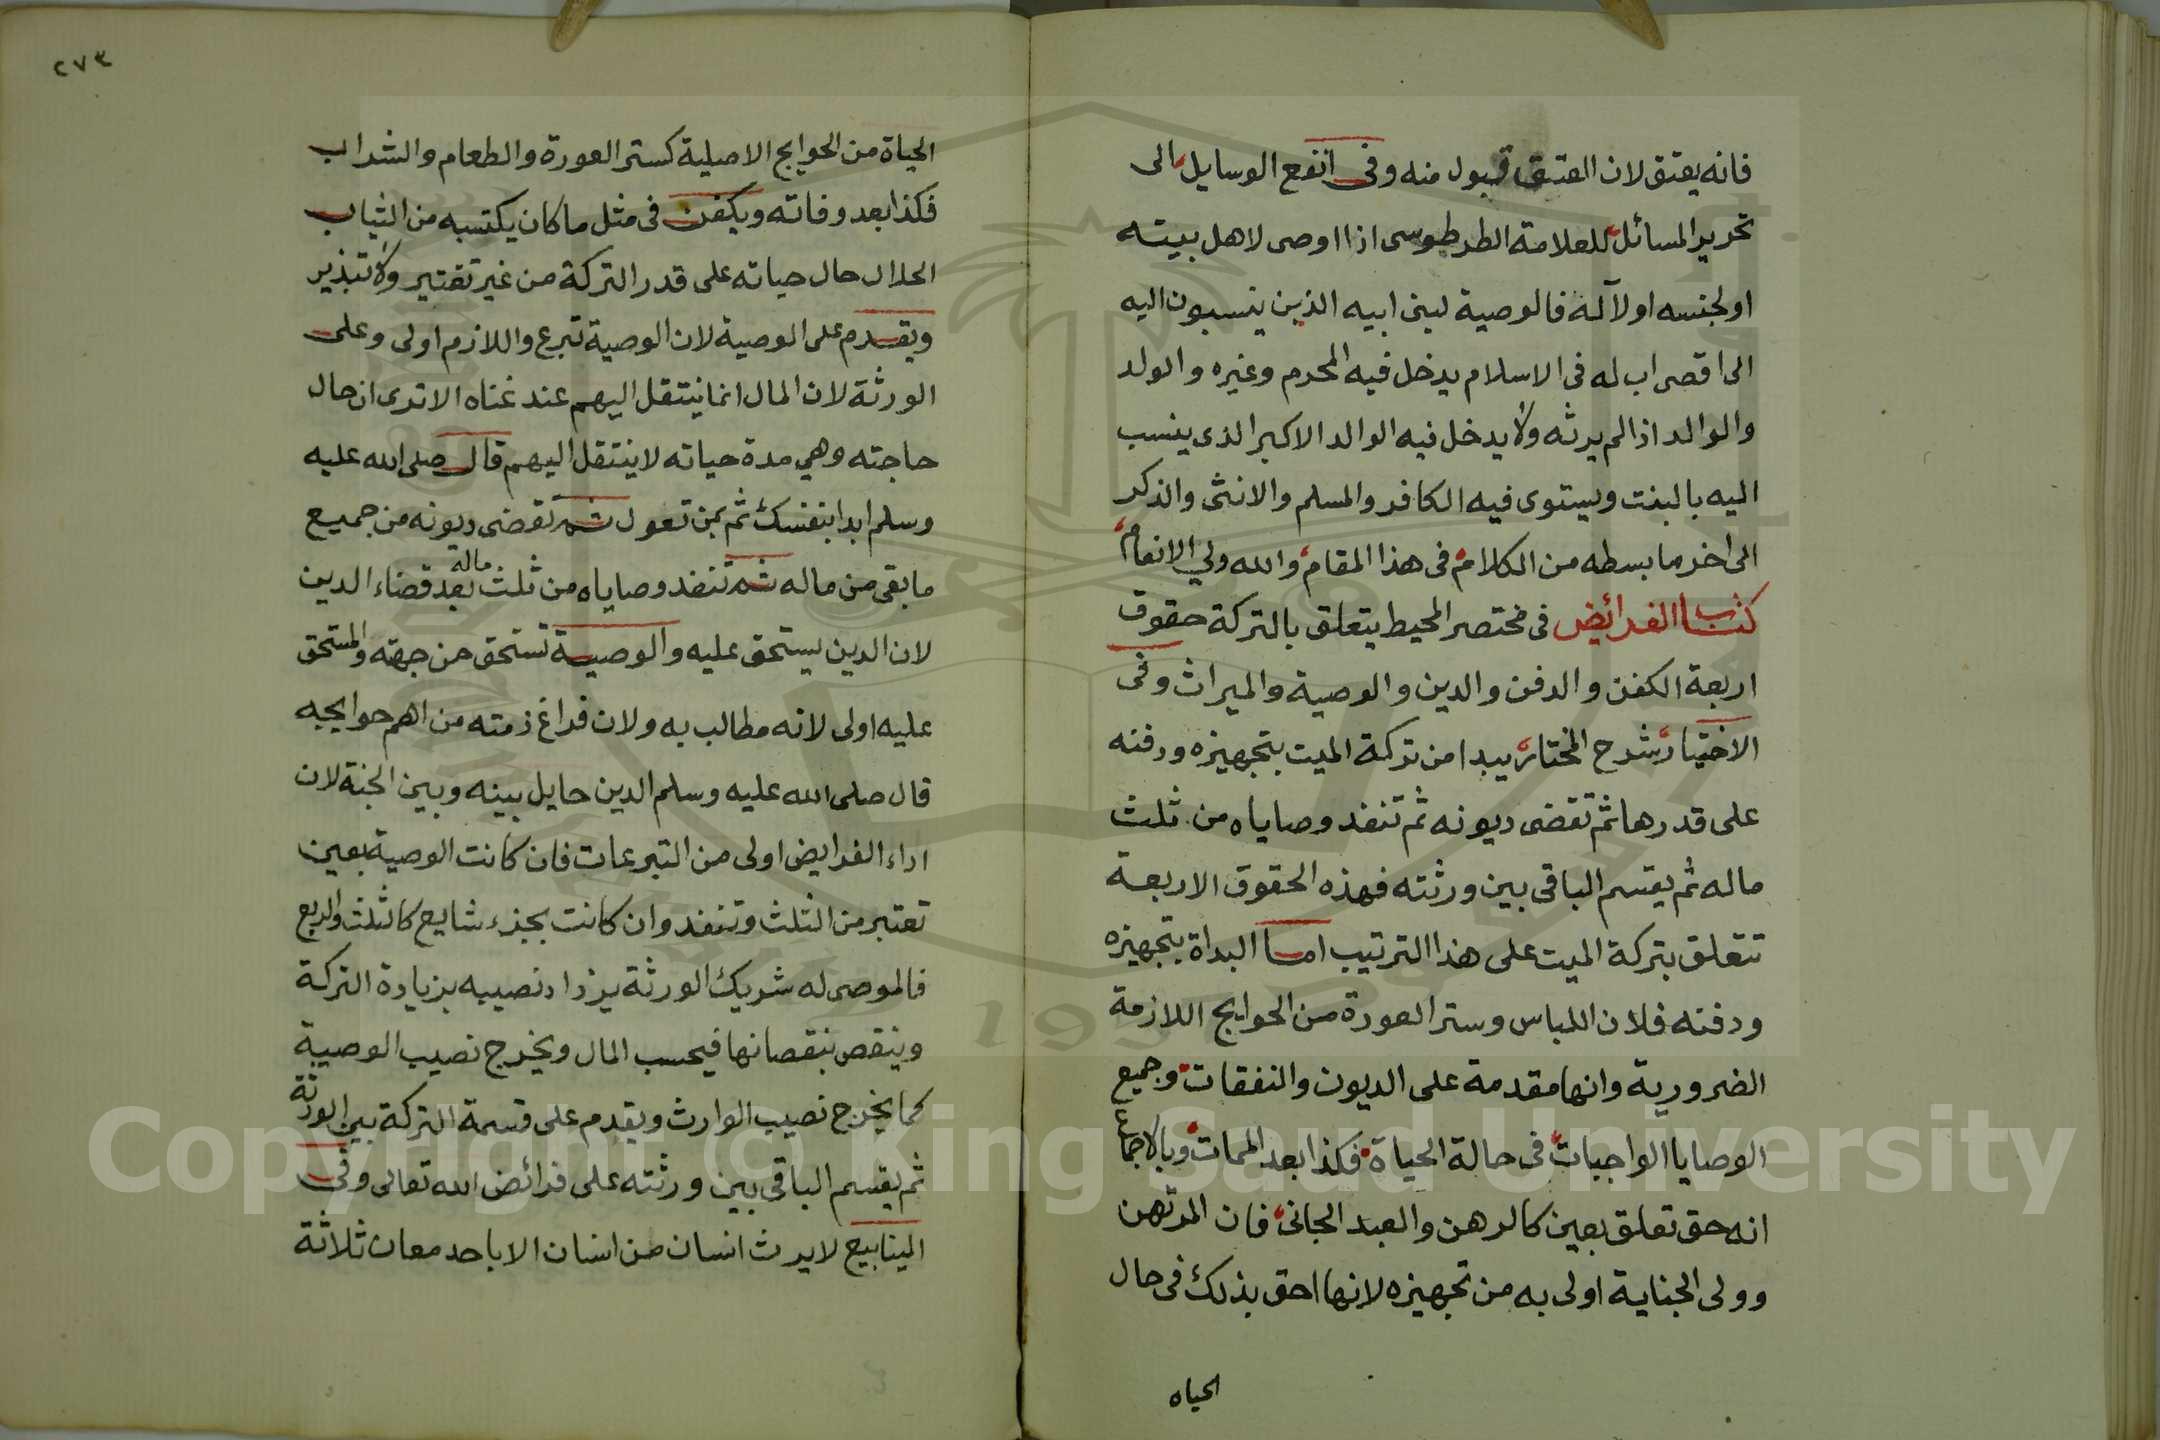 فانه يعتق لان العتق قبول منه وفى انفع الوسايل الى
تحرير المسائل للعلامة الطرطوسى اذا اوصى لاهل بيته
او لجنسه او لآله فالوصية لبنى ابيه الذين ينسبون اليه
الى اقصى اب له فى الاسلام يدخل فيه المحرم وغيره والولد
والوالد اذا لم يرثه ولا يدخل فيه الوالد الاكبر الذى ينسب
اليه بالبنت ويستوى فيه الكافر والمسلم والانثى والذكر
الى اخر ما بسطه من الكلام فى هذا المقام والله ولي الانعام
كتاب الفرائض فى مختصر المحيط يتعلق بالتركة حقوق
اربعة الكفن والدفن والدين والوصية والميراث وفى
الاختيار شرح المختار يبدا من تركة الميت بتجهيزه ودفنه
على قدرها ثم تقضى ديونه ثم تنفد وصاياه من ثلث
ماله ثم يقسم الباقى بين ورثته فهذه الحقوق الاربعة
تتعلق بتركة الميت على هذا الترتيب اما البداة بتجهيزه
ودفنه فلان اللباس وستر العورة من الحوايج اللازمة
الضرورية وانها مقدمة على الديون والنفقات وجميع
الوصايا الواجبات فى حالة الحياة فكذا بعد الممات وبالاجماع
انه حق تعلق بعين كالرهن والعبد الجانى فان المرتهن
وولى الجناية اولى به من تجهيزه لانها احق بذلك فى حال
الحياه
٢٧٣
الحياة من الحوايج الاصيلية كستر العورة والطعام والشراب
فكذا بعد وفاته ويكفن فى مثل ما كان يكتسبه من الثياب
الحلال حال حياته على قدر التركة من غير تقتير ولا تبذير
ويقدم على الوصية لان الوصية تبرع واللازم اولى وعلى
الورثة لان المال انما ينتقل اليهم عند غناه الا ترى ان حال
حاجته وهي مدة حياته لا ينتقل اليهم قال صلى الله عليه
وسلم ابدا بنفسك ثم بمن تعول ثم تقضى ديونه من جميع
ما بقى من ماله ثم تنفد وصاياه من ثلث ماله بعد قضاء الدين
لان الدين يستحق عليه والوصية تستحق من جهته والمستحق
عليه اولى لانه مطالب به ولان فراغ ذمته من اهم حوايجه
قال صلى الله عليه وسلم الدين حايل بينه وبين الجنة لان
اداء الفرايض اولى من التبرعات فان كانت الوصية بعين
تعتبر من الثلث وتنفد وان كانت بجزء شايع كالثلث والربع
فالموصى له شريك الورثة يزداد نصيبه بزيادة التركة
وينقص بنقصانها فيحسب المال ويخرج نصيب الوصية
كما يخرج نصيب الوارث ويقدم على قسمة التركة بين الورثة
ثم يقسم الباقى بين ورثته على فرائض الله تعالى وفى
الينابيع لا يرث انسان من انسان الا باحد معان ثلاثة
Copyright © King Saud University